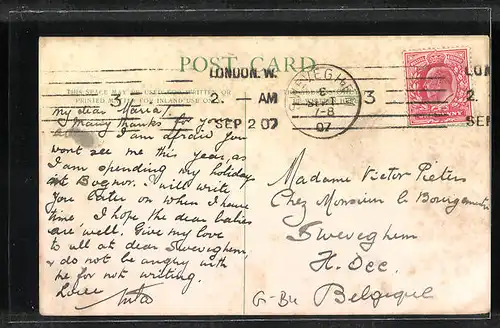 POST CARD
THIS SPACE MAY BE USED FOR WRITTEN OR
PRINTED MATTER FOR INLAND USE ONLY
LONDON. W.
3 2. - AM 3
SEP 2 07
SWEVEGHEM
SEPT
7-8
07
LON
2.
SEP
PENNY
My dear Maria
Many thanks for your
I am afraid you
wont see me this year, as
I am spending my holiday
at Bognor. I will write
you later on when I have
time. I hope the dear babies
are well. Give my love
to all at dear Sweveghem,
& do not be angry with
me for not writing.
Love
Madame Victor Pieters
Chez Monsieur le Bourgemestre
Sweveghem
H. Occ.
Belgique